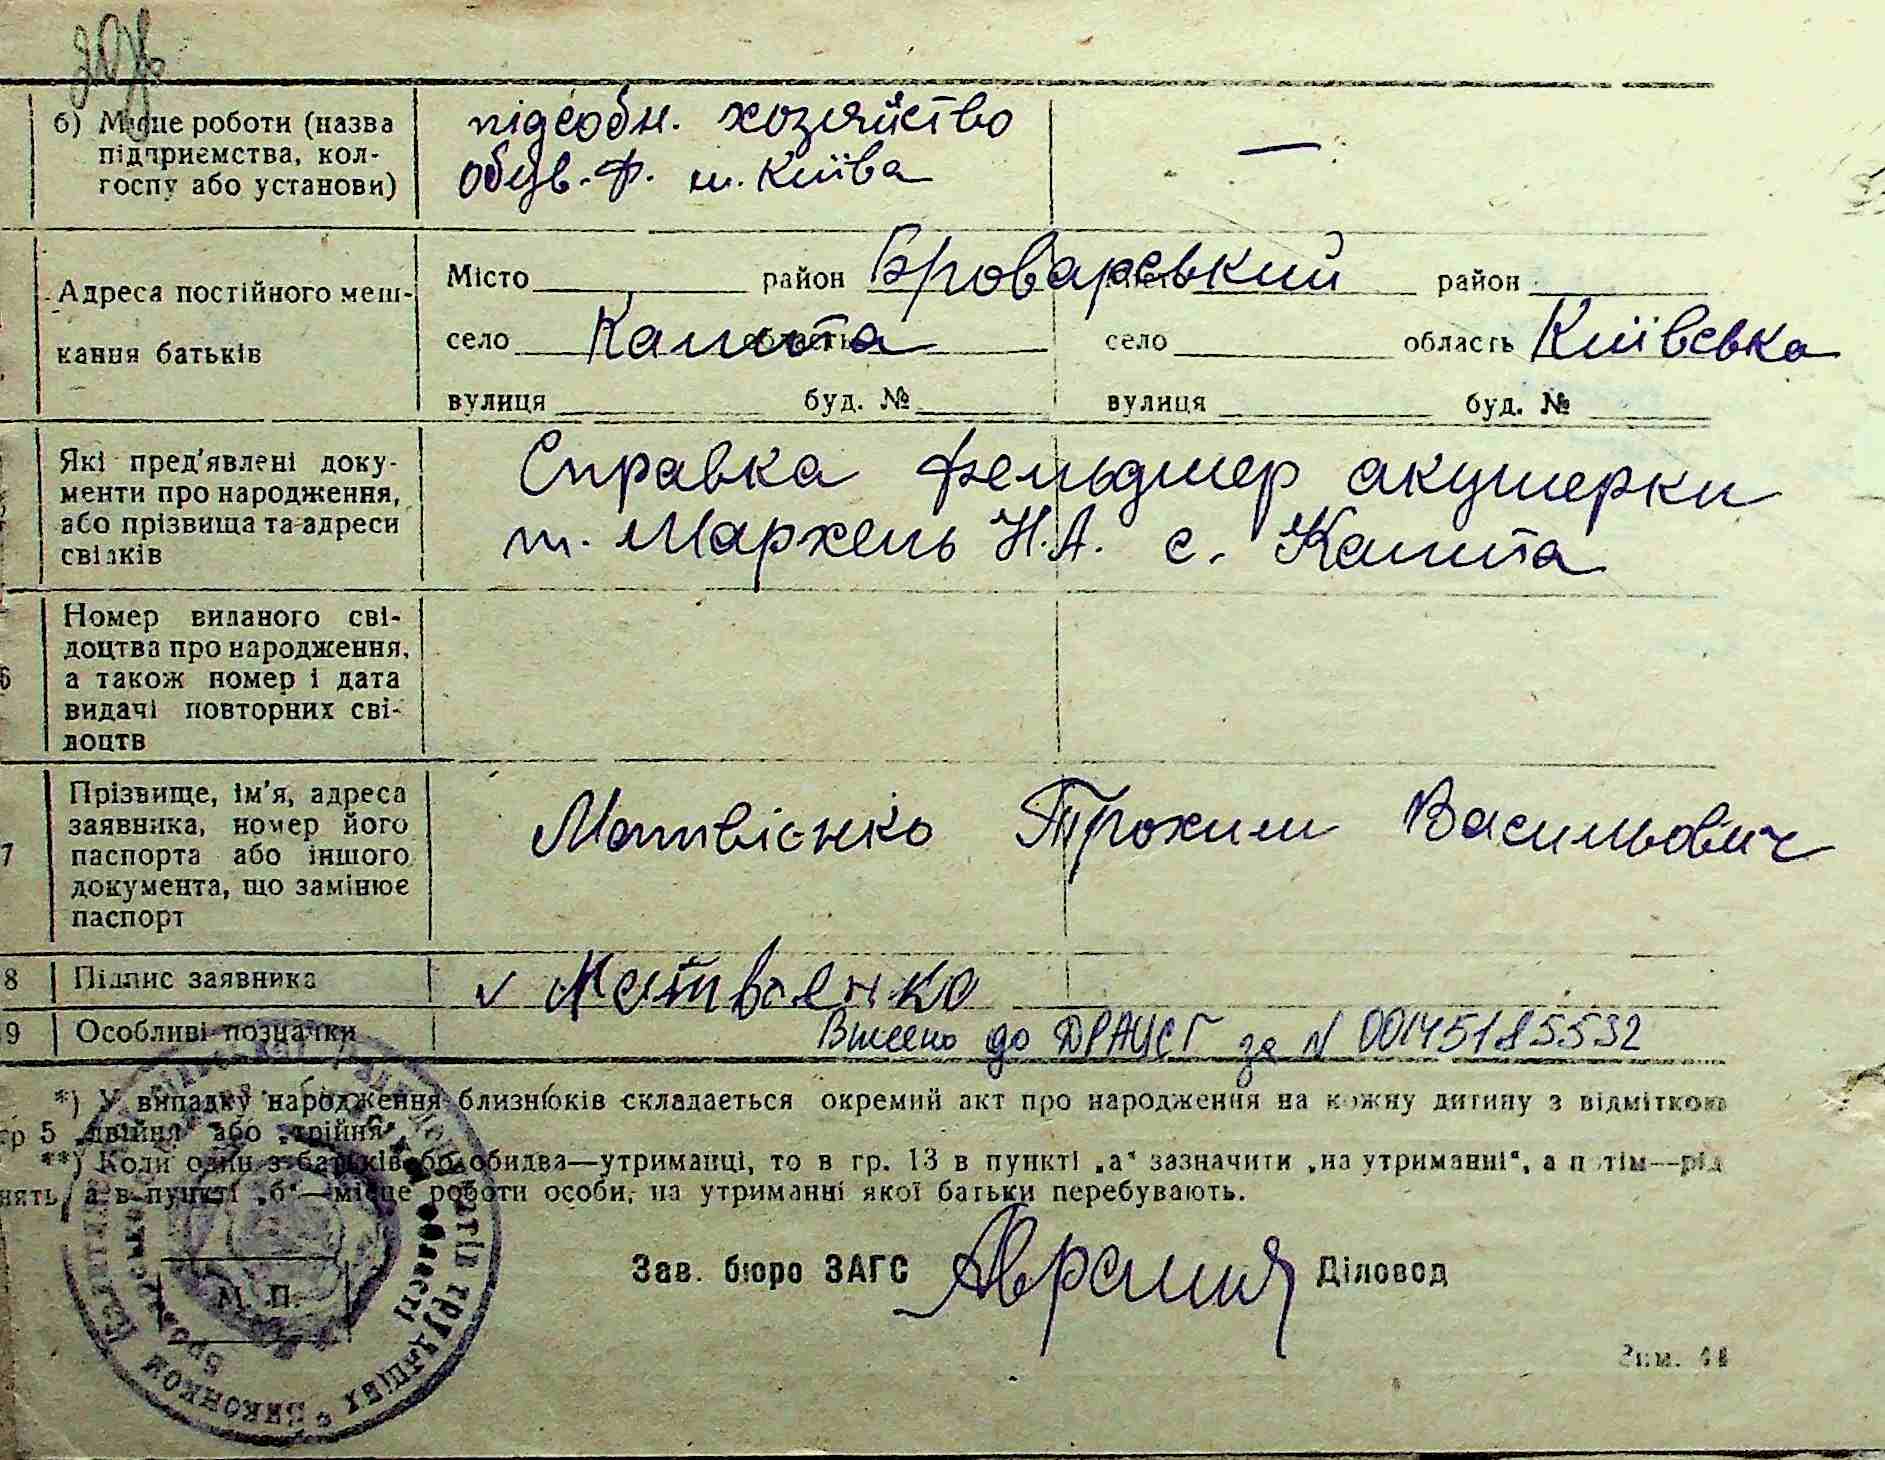 б) Місце роботи (назва підприємства, колгоспу або установи)
підсобн. хозяйство
обув. ф. м. Київа
—
Адреса постійного мешкання батьків
Місто район Броварський район
село Калита область село область Київська
вулиця буд. № вулиця буд. №
Які пред'явлені документи про народження, або прізвища та адреси свідків
Справка фельдшер акушерки
т. Мархель Н.А. с. Калита
6 Номер виданого свідоцтва про народження, а також номер і дата видачі повторних свідоцтв
7 Прізвище, ім'я, адреса заявника, номер його паспорта або іншого документа, що замінює паспорт
Матвієнко Трохим Васильович
8 Підпис заявника
v Матвієнко
9 Особливі позначки
Внесено до ДРАЦСГ за N 00145185532
*) У випадку народження близнюків складається окремий акт про народження на кожну дитину з відміткою
гр 5 „двійня" або „трійня"
**) Коли один з батьків або обидва—утриманці, то в гр. 13 в пункті „а" зазначити „на утриманні", а потім—рід
нять, а в пункті „б"—місце роботи особи, на утриманні якої батьки перебувають.
М. П.
Зав. бюро ЗАГС Діловод
Зам.